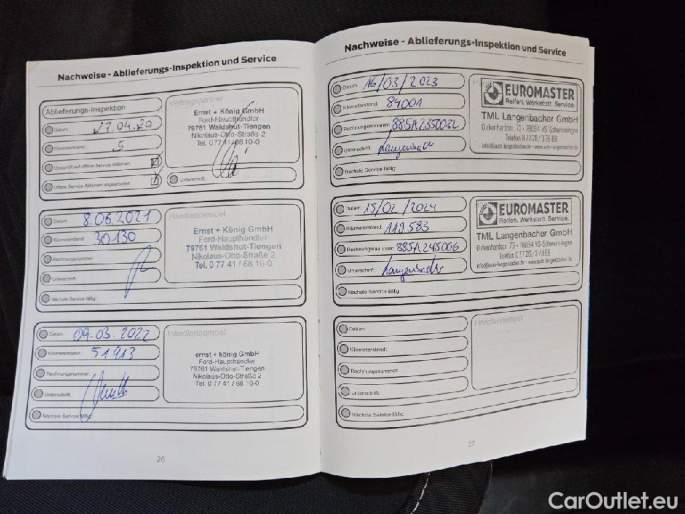 Nachweise - Ablieferungs-Inspektion und Service
Ablieferungs-Inspektion
Datum 27.04.20
Kilometerstand: 5
Unterschrift:
Ernst + König GmbH
Ford-Haupthändler
79761 Waldshut-Tiengen
Nikolaus-Otto-Straße 2
Tel. 0 77 41/68 10-0
Datum 8.06.2021
Kilometerstand: 30130
Rechnungsnummer:
Unterschrift:
Nächste Service fällig:
Händlerstempel
Ernst + König GmbH
Ford-Haupthändler
79761 Waldshut-Tiengen
Nikolaus-Otto-Straße 2
Tel. 0 77 41 / 68 10-0
Datum: 09.03.2022
Kilometerstand: 51913
Rechnungsnummer:
Unterschrift:
Nächste Service fällig:
Händlerstempel
ernst + könig GmbH
Ford-Haupthändler
79761 Waldshut-Tiengen
Nikolaus-Otto-Straße 2
Tel. 0 77 41 / 68 10-0
26
Nachweise - Ablieferungs-Inspektion und Service
Datum: 16/03/2023
Kilometerstand: 84001
Rechnungsnummer:
Unterschrift:
Nächste Service fällig:
EUROMASTER
Reifen. Werkstatt. Service.
TML Langenbacher GmbH
Datum: 15/02/2024
Kilometerstand: 112583
Rechnungsnummer: 885A245006
Unterschrift:
Nächste Service fällig:
EUROMASTER
Reifen. Werkstatt. Service.
TML Langenbacher GmbH
Datum:
Kilometerstand:
Rechnungsnummer:
Unterschrift:
Nächste Service fällig:
Händlerstempel
27
CarOutlet.eu